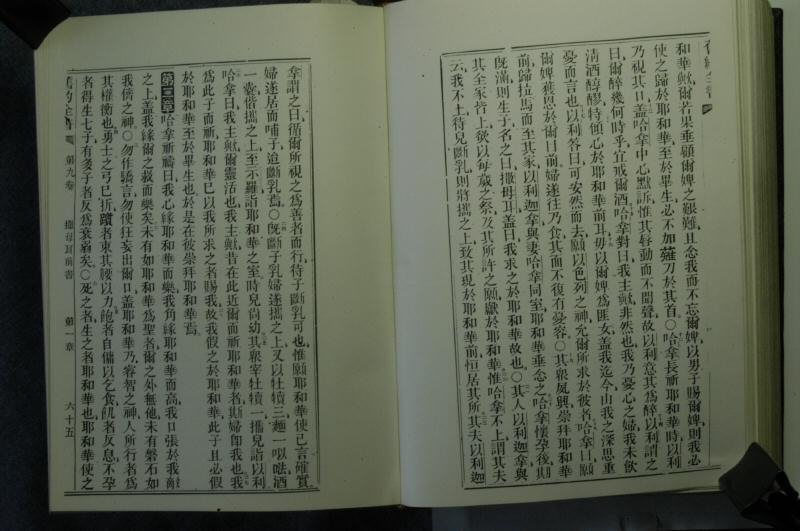 舊約全書
和華歟爾若果垂顧爾婢之艱難且念我而不忘爾婢以男子賜爾婢則我必
使之歸於耶和華至於畢生必不加薙刀於其首〇哈拿長祈耶和華時以利
乃視其口蓋哈拿中心默訴惟其唇動而不聞聲故以利意其為醉以利謂之
曰爾醉幾何時乎宜戒爾酒哈拿對曰我主歟非然也我乃憂心之婦我未飲
清酒醇醪特傾心於耶和華前耳毋以爾婢為匪女蓋我迄今由我之深思重
憂而言也以利答曰可安然而去願以色列之神允爾所求於彼者哈拿曰願
爾婢獲恩於爾目前婦遂往乃食其面不復有憂容〇其眾夙興崇拜耶和華
前歸拉馬而至其家以利迦拿與妻哈拿同室耶和華垂念之哈拿懷孕後期
既滿則生子名之曰撒母耳蓋曰我求之於耶和華故也〇其人以利迦拿與
其全家皆上欲以每歲之祭及其所許之願獻於耶和華惟哈拿不上謂其夫
云我不上待兒斷乳則將攜之上致其現於耶和華前恒居其所其夫以利迦
拿謂之曰循爾所視之為善者而行待子斷乳可也惟願耶和華使已言確實
婦遂居而哺子迨斷乳焉〇既斷子乳婦遂攜之上又以牡犢三麵一以咶酒
一囊偕攜之上至示羅詣耶和華之室時兒尚幼其眾宰牡犢一攜兒詣以利
哈拿曰我主歟爾靈活也我主歟昔在此近爾而祈耶和華者斯婦卽我也我
為此子而祈耶和華已以我所求之者賜我故我假之於耶和華此子且必假
於耶和華至於畢生也於是在彼崇拜耶和華焉
第二章哈拿祈禱曰我心緣耶和華而樂我角緣耶和華而高我口張於我敵
之上蓋我緣爾之救而樂矣未有如耶和華為聖者爾之外無他未有磐石如
我儕之神〇勿作驕言勿使狂妄出爾口蓋耶和華乃睿智之神人所行者為
其權衡也勇士之弓已折蹟者束其腰以力飽者自傭以乞食飢者反息不孕
者得生七子有多子者反為衰弱矣〇死之者生之者耶和華也耶和華使之
舊約全書 第九卷 撒母耳前書 第一章 六十五